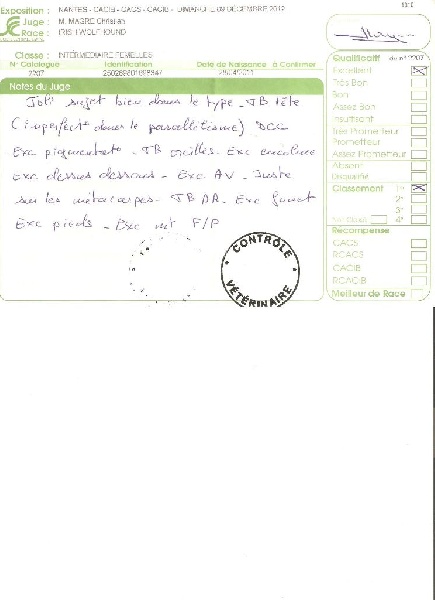 Exposition : NANTES - CACIB - CACS - CACIB - DIMANCHE 09 DÉCEMBRE 2012
Juge : M. MAGRE Christian
Race : IRISH WOLFHOUND
Classe : INTERMEDIAIRE FEMELLES
N° Catalogue Identification Date de Naissance à Confirmer
2207
Notes du Juge
Joli sujet bien dans le type - TB tête
(imperfect° dans le parallélisme) DCC
Exc pigmentat° - TB oreilles - Exc encolure
Exc dessus dessous - Exc AV - Juste
sur les métacarpes - TB AR - Exc fouet
Exc pieds - Exc mvt P/P
CONTRÔLE
VÉTÉRINAIRE
Qualificatif 2207
Excellent
Très Bon
Bon
Assez Bon
Insuffisant
Très Prometteur
Prometteur
Assez Prometteur
Absent
Disqualifié
Classement 1er
2e
3e
Non Classé 4e
Récompense
CACS
RCACS
CACIB
RCACIB
Meilleur de Race